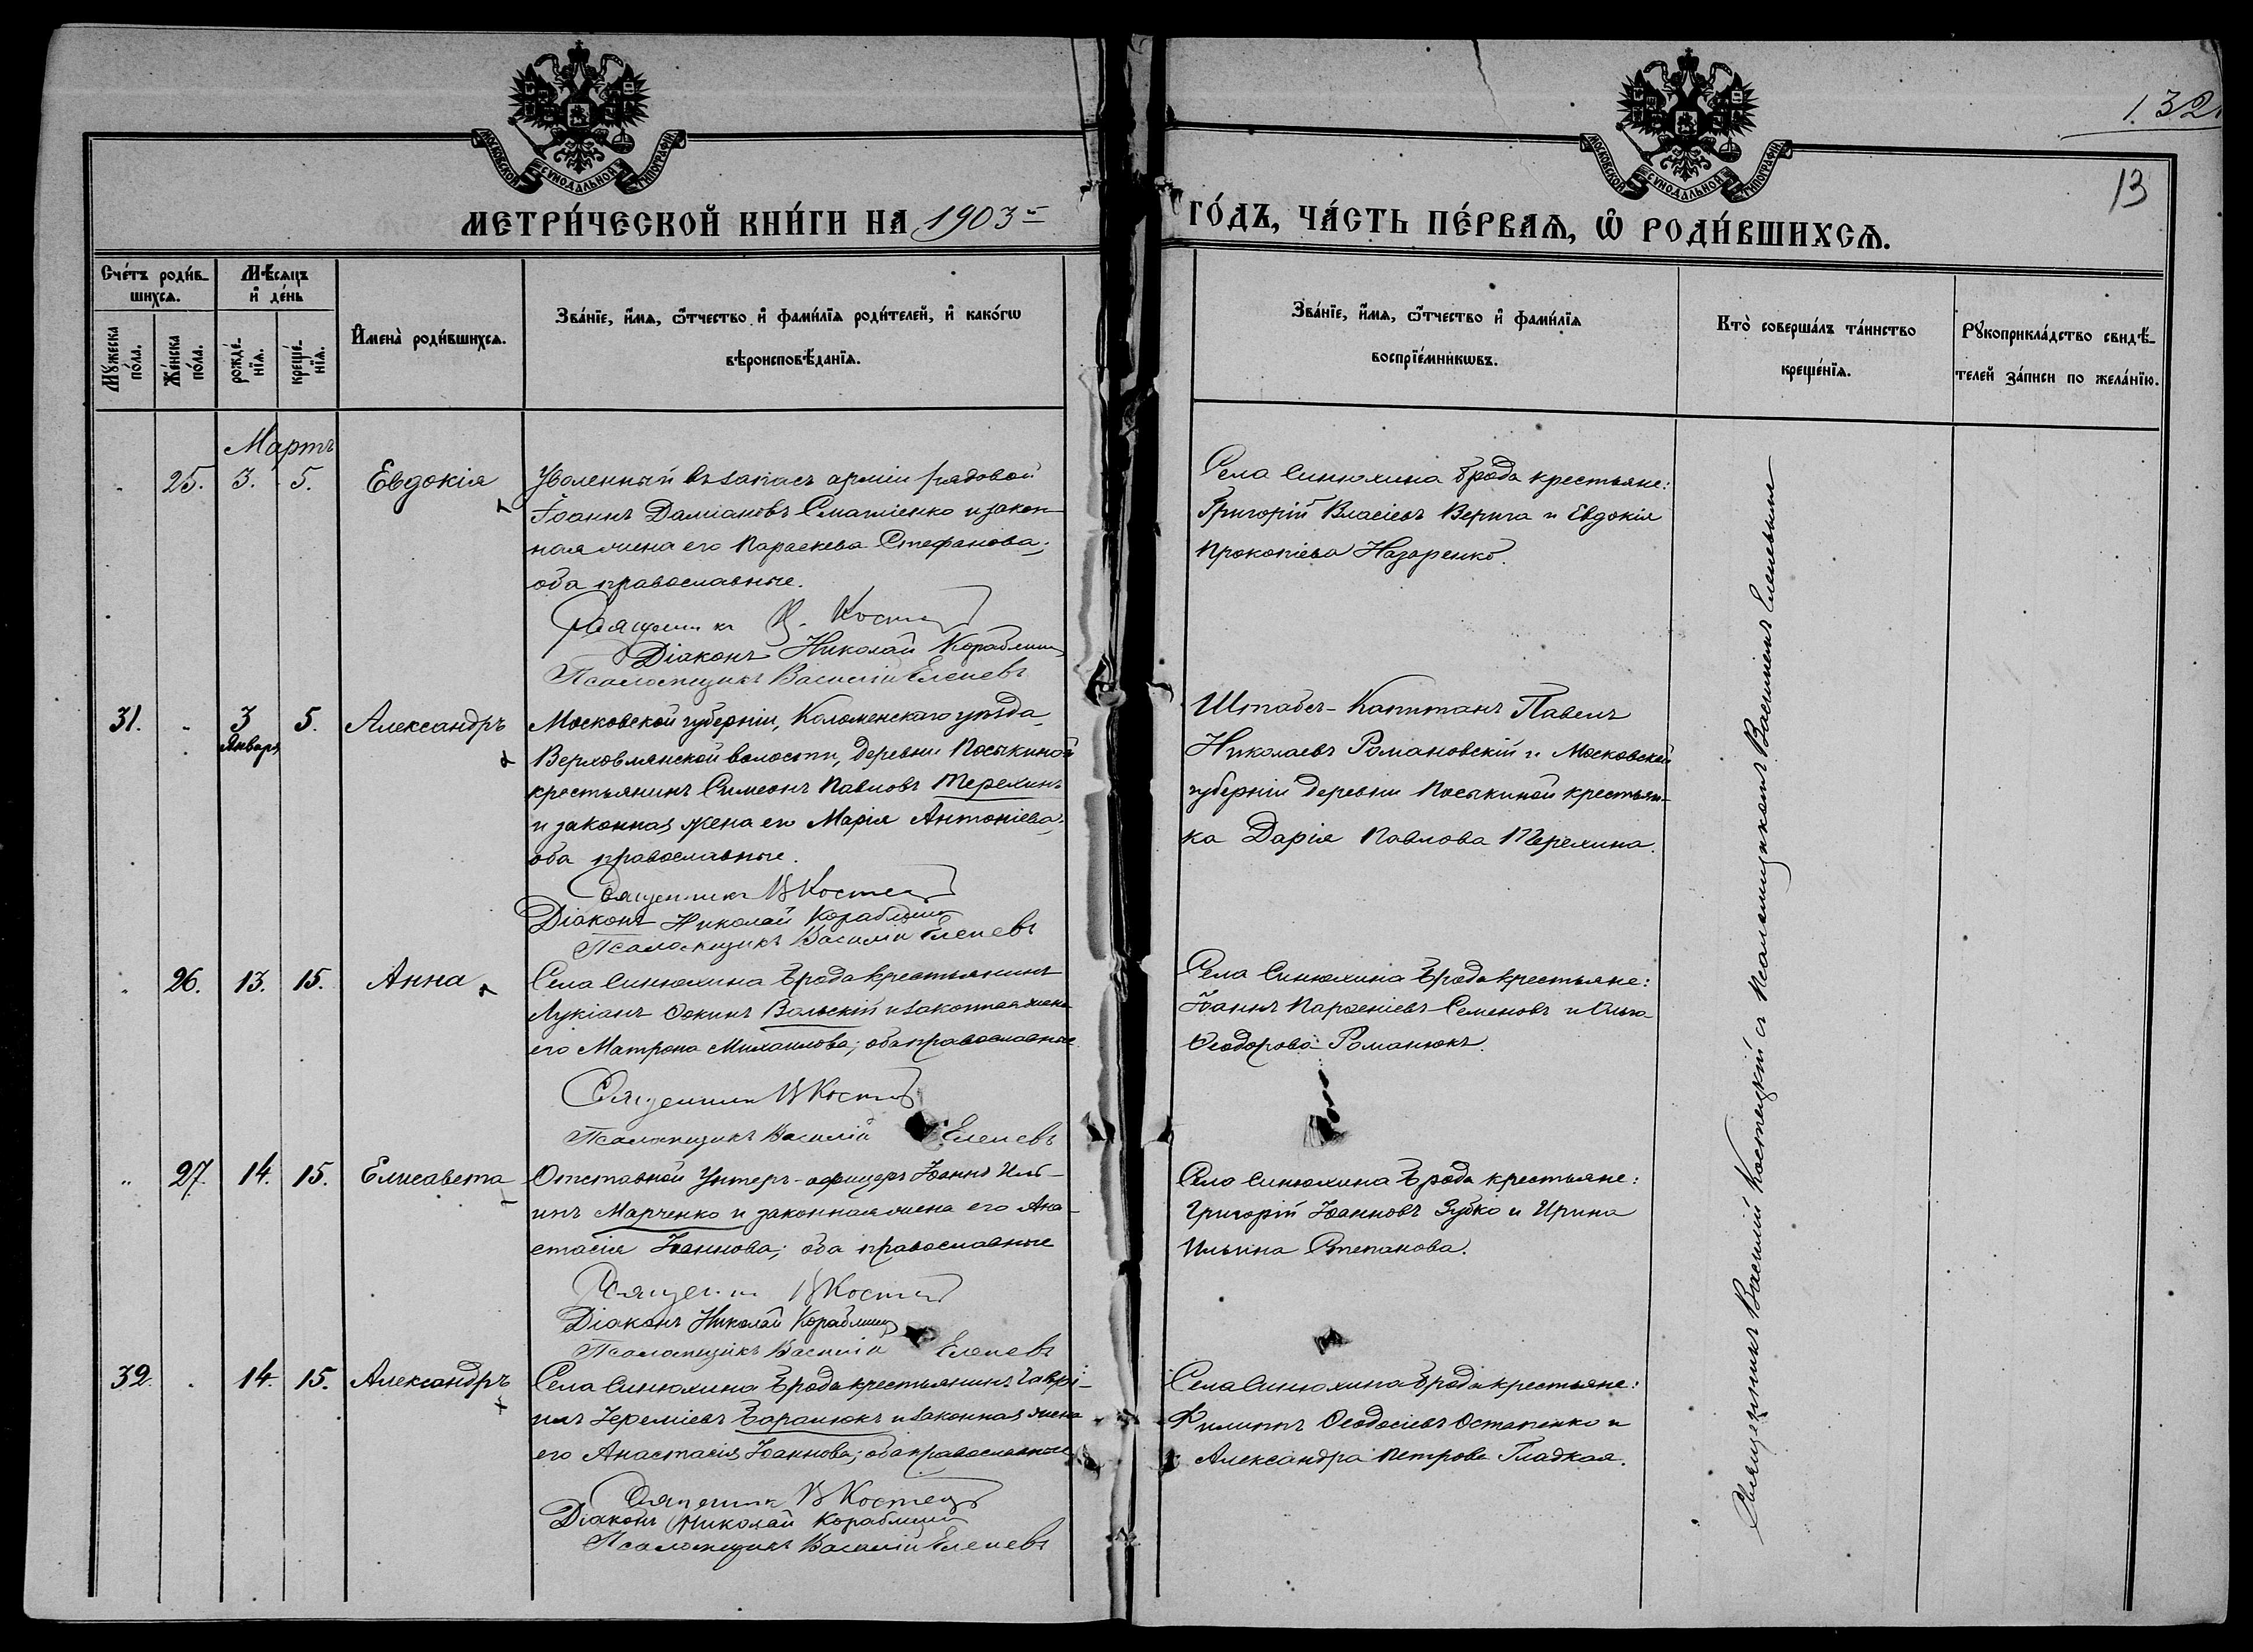 132
13
МОСКОВСКОЙ СѴНОДАЛЬНОЙ ТИПОГРАФІИ
МОСКОВСКОЙ СѴНОДАЛЬНОЙ ТИПОГРАФІИ
МЕТРИ́ЧЕСКОЙ КНИ́ГИ НА 1903й
ГО́ДЪ, ЧА́СТЬ ПЕ́РВАѦ, Ѡ҆ РОДИ́ВШИХСѦ.
Сче́тъ роди́в-
шихсѧ.
Мѣ́сяцъ
и҆ де́нь
Мꙋ́жеска по́ла.
Же́нска по́ла.
рожде́-
нїѧ.
креще́-
нїѧ.
И҆мена̀ роди́вшихсѧ.
Зва́нїе, и҆́мѧ, ѻ҆́тчество и҆ фами́лїѧ роди́телей, и҆ како́гѡ
вѣроисповѣ́данїѧ.
Зва́нїе, и҆́мѧ, ѻ҆́тчество и҆ фами́лїѧ
воспрїе́мникѡвъ.
Кто̀ соверша́лъ та́инство
креще́нїѧ.
Рꙋкоприкла́дство свидѣ́-
телей за́писи по жела́нїю.
Мартъ
25. 3. 5. Евдокія
Уволенный въ запасъ арміи рядовой
Іоаннъ Даміановъ и закон-
ная жена его Параскева Стефанова;
оба православные.
Священникъ В. Костец
Діаконъ Николай Кораблин
Псаломщикъ Василій Елепевъ
Села Синюхина Брода крестьяне:
Григорій Власіевъ Верига и Евдокія
Прокопіева Назаренко.
31. 3 Января 5. Александръ
Московской губерніи, Коломенскаго уѣзда,
Верховлянской волости, деревни Посыкиной
крестьянинъ Симеонъ Павловъ Терехинъ
и законная жена его Марія Антоніева;
оба православные.
Священникъ В Костец
Діаконъ Николай Кораблин
Псаломщикъ Василій Елепевъ
Штабсъ-Капитанъ Павелъ
Николаевъ Романовскій и Московской
губерніи деревни Посыкиной крестьян-
ка Дарія Павлова Терехина.
26. 13. 15. Анна
Села Синюхина Брода крестьянинъ
Лукіанъ Ѳокинъ Вольскій и законная жена
его Матрона Михаилова; оба православные
Священникъ В Костец
Псаломщикъ Василій Елепевъ
Села Синюхина Брода крестьяне:
Іоаннъ Парѳеніевъ Семеновъ и Ольга
Ѳеодорова Романюкъ.
27. 14. 15. Елисавета
Отставной Унтеръ-офицеръ Іоаннъ Иль-
инъ Марченко и законная жена его Ана-
стасія Іоаннова; оба православные
Священник В Костец
Діаконъ Николай Кораблин
Псаломщикъ Василій Елепевъ
Села Синюхина Брода крестьяне:
Григорій Іоанновъ Зубко и Ирина
Ильина Степанова.
32. 14. 15. Александръ
Села Синюхина Брода крестьянинъ Гаврі-
илъ Іереміевъ Баранюкъ и законная жена
его Анастасія Іоаннова; оба православные
Священник В Костец
Діаконъ Николай Кораблин
Псаломщикъ Василій Елепевъ
Села Синюхина Брода крестьяне:
Филиппъ Ѳеодосіевъ Остапенко и
Александра Петрова Гладкая.
Священникъ Василій Костецкій съ псаломщикомъ Василіемъ Елепевымъ